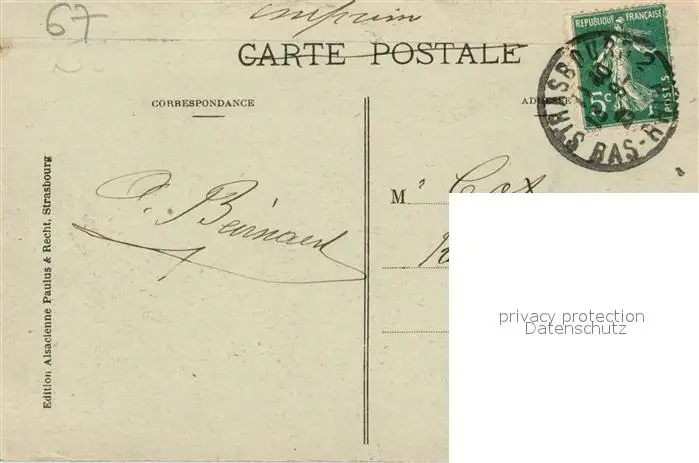 67
imprim
CARTE POSTALE
REPUBLIQUE FRANÇAISE
5c
POSTES
STRASBOURG 2
BAS-RHIN
CORRESPONDANCE
ADRESSE
M
Edition Alsacienne Paulus & Recht, Strasbourg
privacy protection
Datenschutz